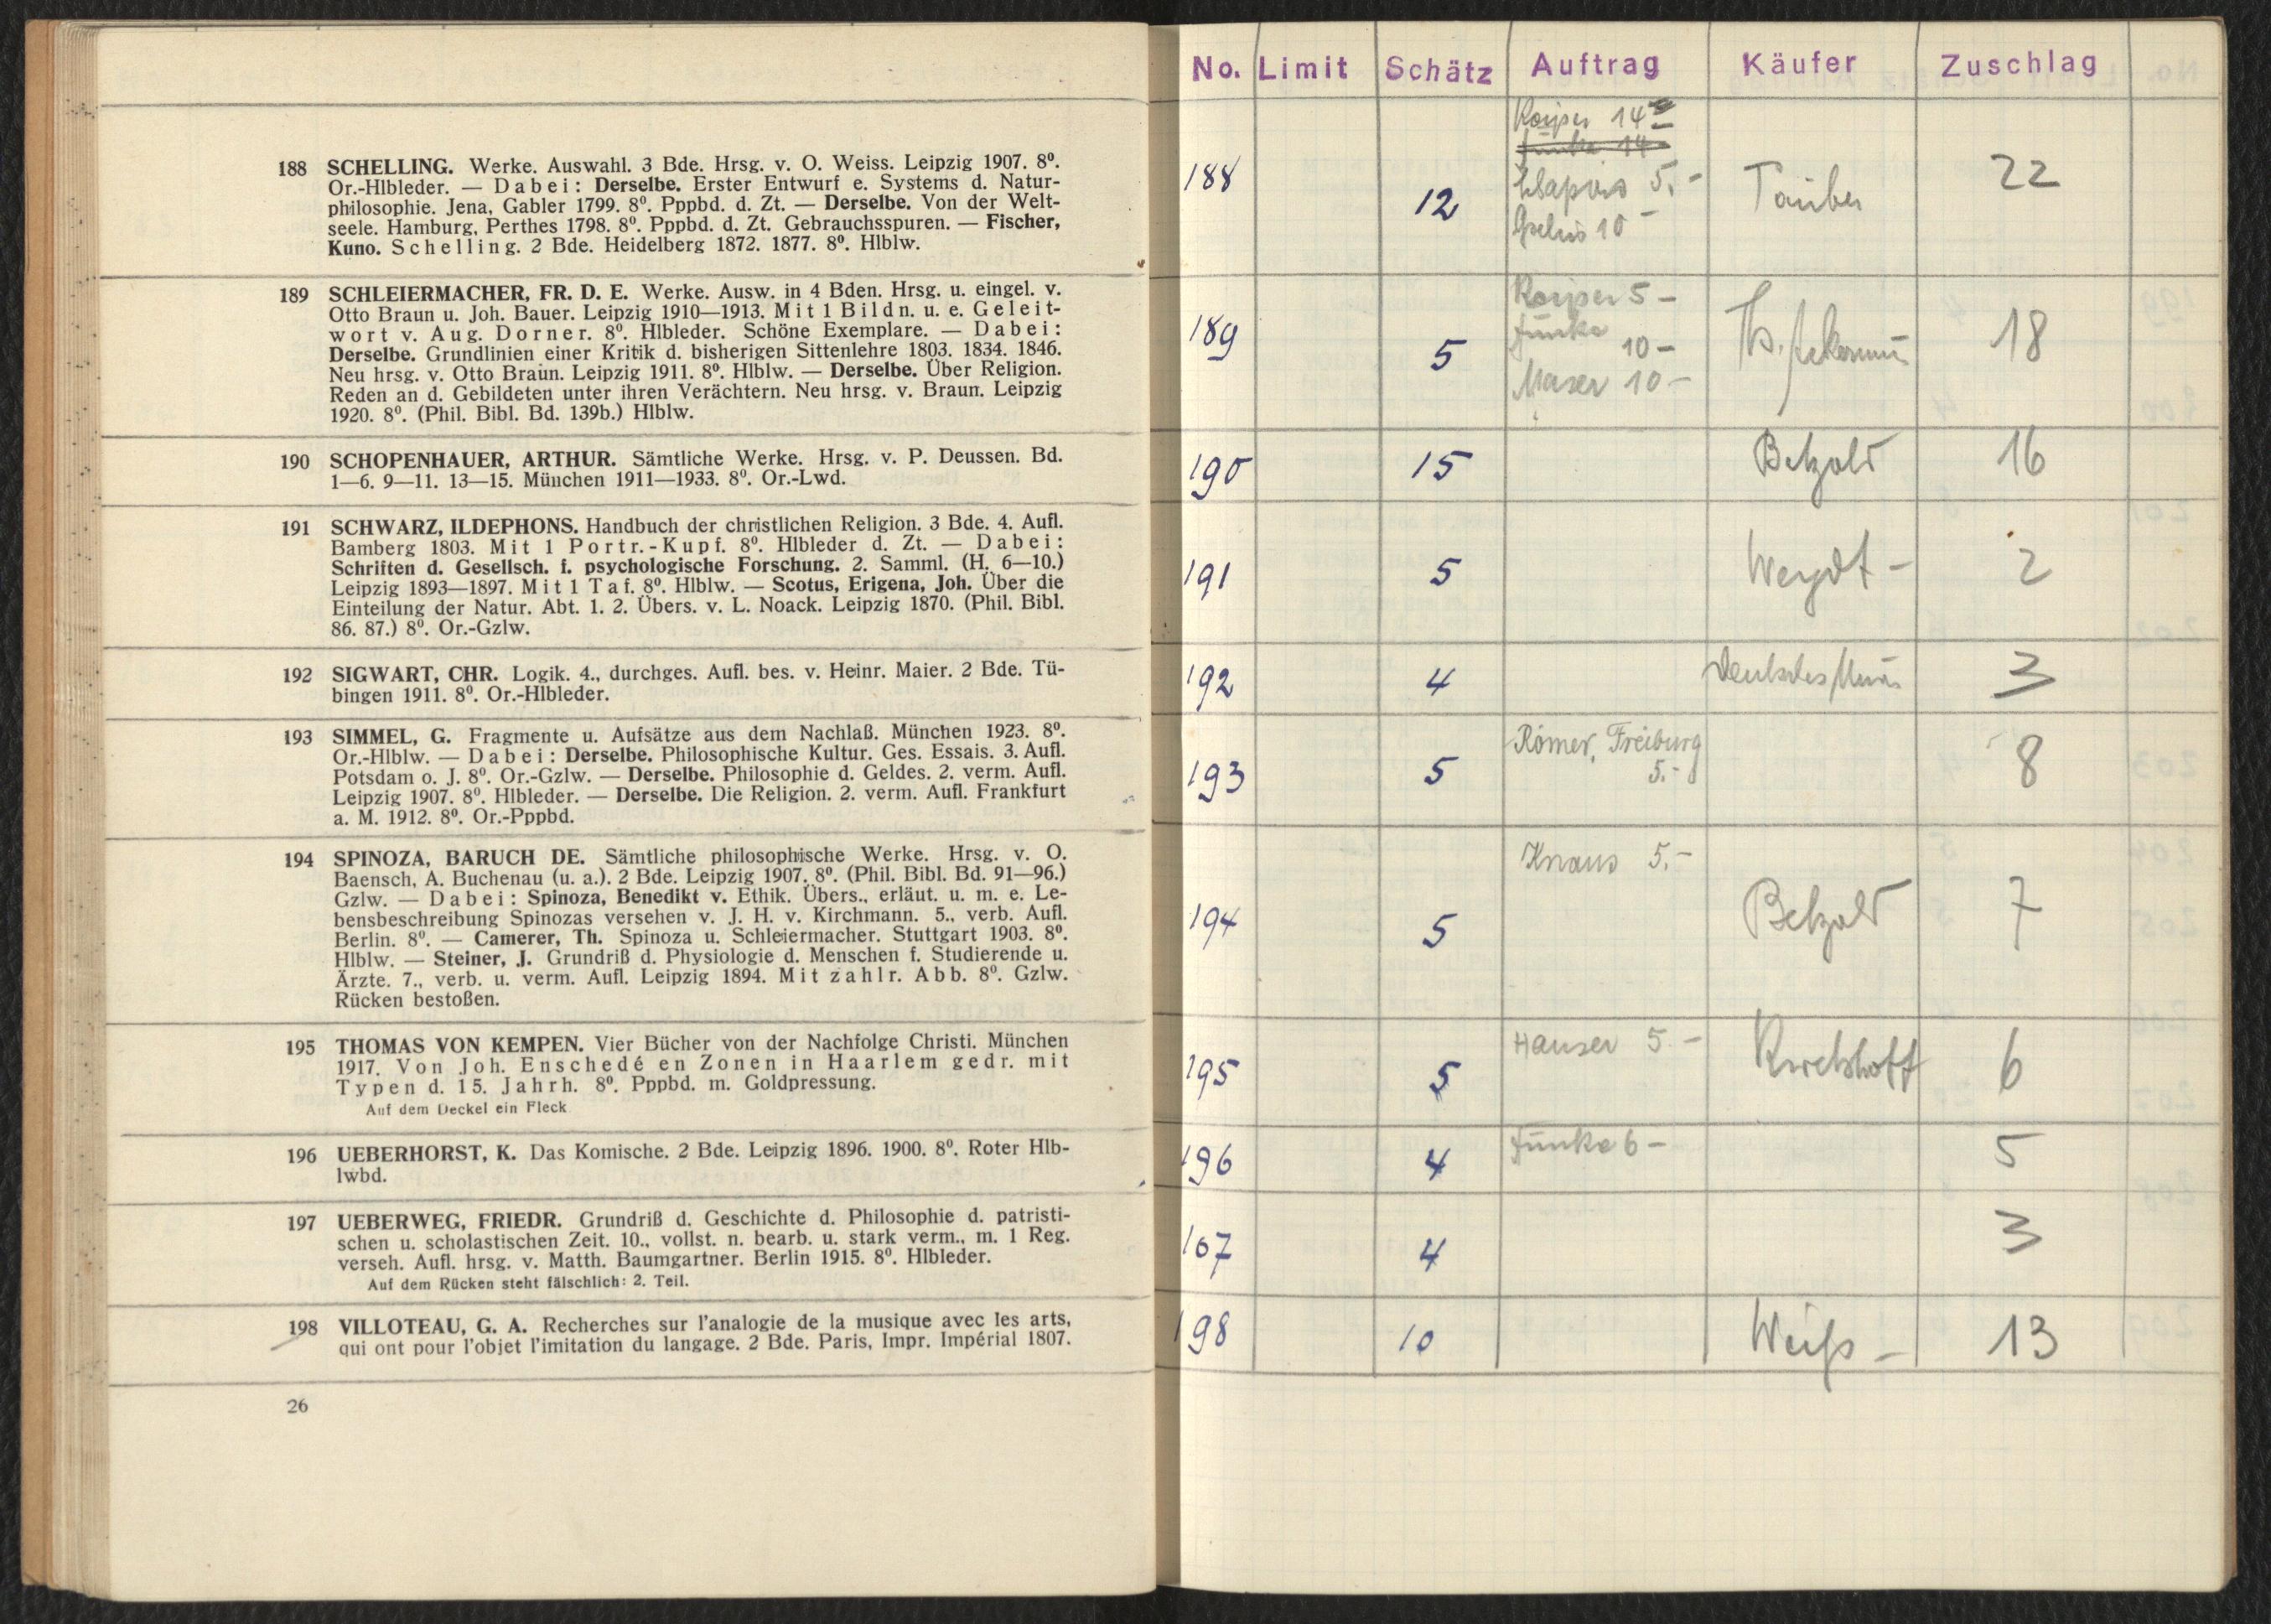 188 SCHELLING. Werke. Auswahl. 3 Bde. Hrsg. v. O. Weiss. Leipzig 1907. 8⁰.
Or.-Hlbleder. — Dabei: Derselbe. Erster Entwurf e. Systems d. Natur-
philosophie. Jena, Gabler 1799. 8⁰. Pppbd. d. Zt. — Derselbe. Von der Welt-
seele. Hamburg, Perthes 1798. 8⁰. Pppbd. d. Zt. Gebrauchsspuren. — Fischer,
Kuno. Schelling. 2 Bde. Heidelberg 1872. 1877. 8⁰. Hlblw.
189 SCHLEIERMACHER, FR. D. E. Werke. Ausw. in 4 Bden. Hrsg. u. eingel. v.
Otto Braun u. Joh. Bauer. Leipzig 1910—1913. Mit 1 Bildn. u. e. Geleit-
wort v. Aug. Dorner. 8⁰. Hlbleder. Schöne Exemplare. — Dabei:
Derselbe. Grundlinien einer Kritik d. bisherigen Sittenlehre 1803. 1834. 1846.
Neu hrsg. v. Otto Braun. Leipzig 1911. 8⁰. Hlblw. — Derselbe. Über Religion.
Reden an d. Gebildeten unter ihren Verächtern. Neu hrsg. v. Braun. Leipzig
1920. 8⁰. (Phil. Bibl. Bd. 139b.) Hlblw.
190 SCHOPENHAUER, ARTHUR. Sämtliche Werke. Hrsg. v. P. Deussen. Bd.
1—6. 9—11. 13—15. München 1911—1933. 8⁰. Or.-Lwd.
191 SCHWARZ, ILDEPHONS. Handbuch der christlichen Religion. 3 Bde. 4. Aufl.
Bamberg 1803. Mit 1 Portr.-Kupf. 8⁰. Hlbleder d. Zt. — Dabei:
Schriften d. Gesellsch. f. psychologische Forschung. 2. Samml. (H. 6—10.)
Leipzig 1893—1897. Mit 1 Taf. 8⁰. Hlblw. — Scotus, Erigena, Joh. Über die
Einteilung der Natur. Abt. 1. 2. Übers. v. L. Noack. Leipzig 1870. (Phil. Bibl.
86. 87.) 8⁰. Or.-Gzlw.
192 SIGWART, CHR. Logik. 4., durchges. Aufl. bes. v. Heinr. Maier. 2 Bde. Tü-
bingen 1911. 8⁰. Or.-Hlbleder.
193 SIMMEL, G. Fragmente u. Aufsätze aus dem Nachlaß. München 1923. 8⁰.
Or.-Hlblw. — Dabei: Derselbe. Philosophische Kultur. Ges. Essais. 3. Aufl.
Potsdam o. J. 8⁰. Or.-Gzlw. — Derselbe. Philosophie d. Geldes. 2. verm. Aufl.
Leipzig 1907. 8⁰. Hlbleder. — Derselbe. Die Religion. 2. verm. Aufl. Frankfurt
a. M. 1912. 8⁰. Or.-Pppbd.
194 SPINOZA, BARUCH DE. Sämtliche philosophische Werke. Hrsg. v. O.
Baensch, A. Buchenau (u. a.). 2 Bde. Leipzig 1907. 8⁰. (Phil. Bibl. Bd. 91—96.)
Gzlw. — Dabei: Spinoza, Benedikt v. Ethik. Übers., erläut. u. m. e. Le-
bensbeschreibung Spinozas versehen v. J. H. v. Kirchmann. 5., verb. Aufl.
Berlin. 8⁰. — Camerer, Th. Spinoza u. Schleiermacher. Stuttgart 1903. 8⁰.
Hlblw. — Steiner, J. Grundriß d. Physiologie d. Menschen f. Studierende u.
Ärzte. 7., verb. u. verm. Aufl. Leipzig 1894. Mit zahlr. Abb. 8⁰. Gzlw.
Rücken bestoßen.
195 THOMAS VON KEMPEN. Vier Bücher von der Nachfolge Christi. München
1917. Von Joh. Enschedé en Zonen in Haarlem gedr. mit
Typen d. 15. Jahrh. 8⁰. Pppbd. m. Goldpressung.
Auf dem Deckel ein Fleck.
196 UEBERHORST, K. Das Komische. 2 Bde. Leipzig 1896. 1900. 8⁰. Roter Hlb-
lwbd.
197 UEBERWEG, FRIEDR. Grundriß d. Geschichte d. Philosophie d. patristi-
schen u. scholastischen Zeit. 10., vollst. n. bearb. u. stark verm., m. 1 Reg.
verseh. Aufl. hrsg. v. Matth. Baumgartner. Berlin 1915. 8⁰. Hlbleder.
Auf dem Rücken steht fälschlich: 2. Teil.
198 VILLOTEAU, G. A. Recherches sur l'analogie de la musique avec les arts,
qui ont pour l'objet l'imitation du langage. 2 Bde. Paris, Impr. Impérial 1807.
26
No. Limit Schätz Auftrag Käufer Zuschlag
14
14
5.-
10 -
188 12 22
5 -
Funke
10 -
Maser 10 -
189 5 18
190 15 Betzold 16
191 5 Weydt - 2
192 4 Deutsches Mus. 3
Römer, Freiburg
5.-
193 5 8
Knaus 5.-
194 5 Betzold 7
Hauser 5.-
195 5 6
Funke 6 -
196 4 5
167 4 3
198 10 Weiß - 13